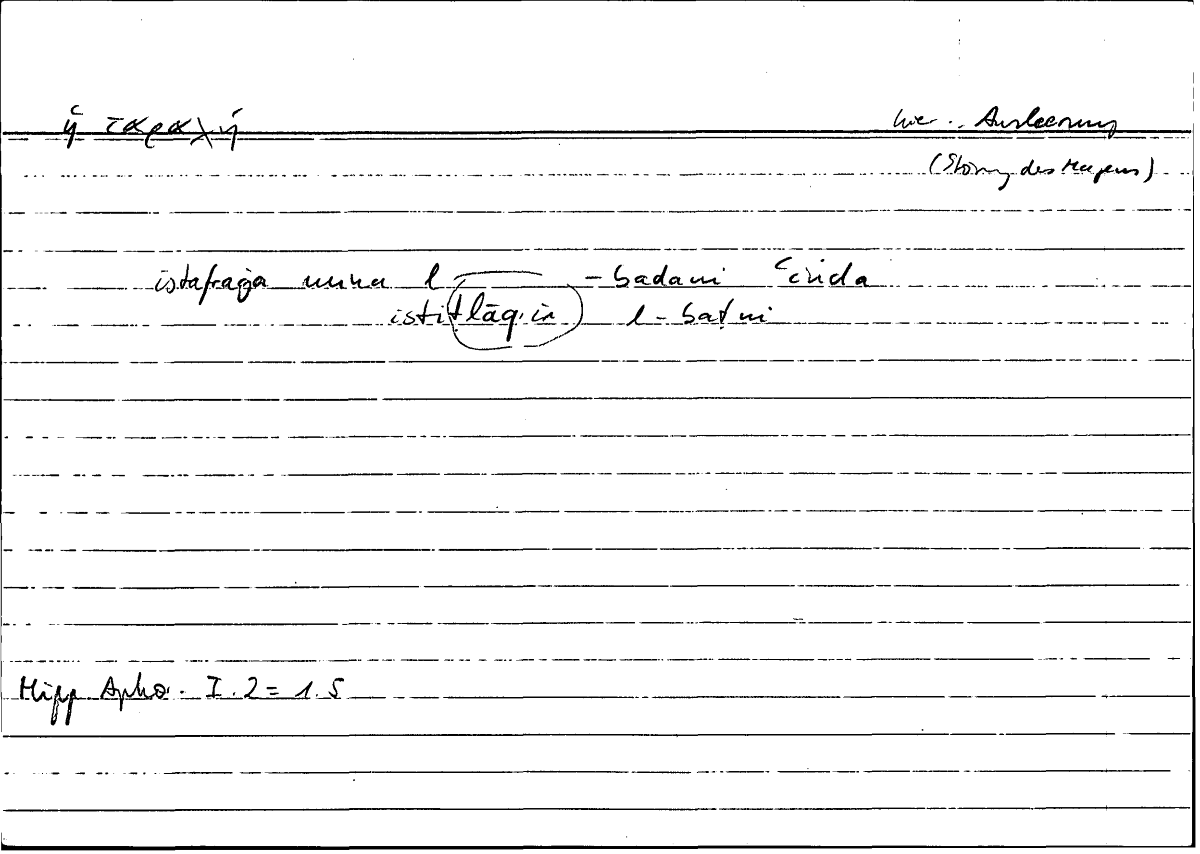 ἡ ταραχή hier: Ausleerung
(Störung des Magens)
istafraġa mina l -badani ʿinda
istiṭlāq in l-baṭni
Hipp Apho. I.2 = 1.5